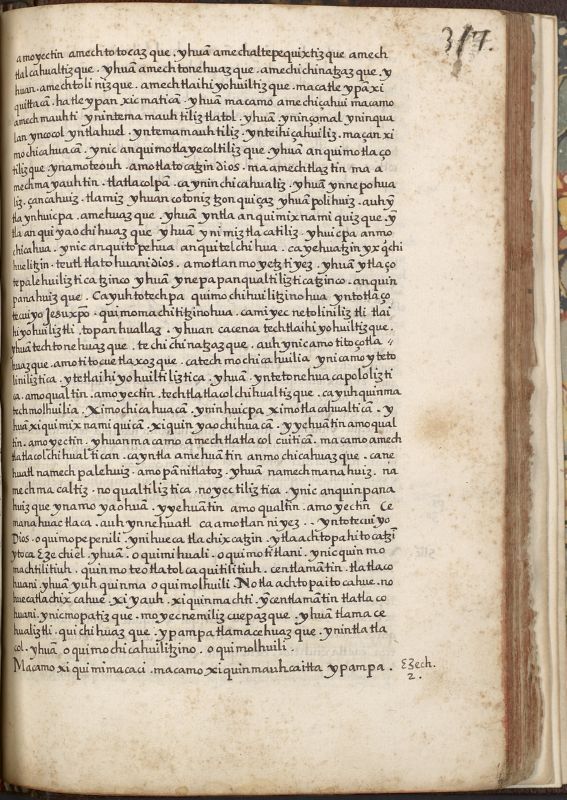 317.
amoyectin amechtotocazque. yhuā amechaltepequixtizque amech
tlalcahualtizque. yhuā amechtonehuazque. amechichinatzazque. y
huan. amechtolinizque. amechtlaihiyohuiltizque. macatle ypā xi
quittacā. hatle ypan xicmaticā. yhuā macamo amechiçahui macamo
amechmauhti ynintemamauhtiliztlatol. yhuā yninçomal yninqua
lan yncocol yntlahuel. yntemamauhtiliz. ynteihiçahuiliz. maçan xi
mochicahuacā. ynic anquimotlayecoltilizque yhuā anquimotlaço
tilizque ynamoteouh. amotlatocatzin dios. ma amechtlaztin ma a
mechmayauhtin. tlatlacolpā. ca ynin chicahualiz. yhuā ynnepohua
liz. çancahuiz. tlamiz yhuan cotoniz tzonquiçaz yhuā polihuiz. auh ỹ
tla ynhuicpa. amehuazque. yhuā yntla anquimixnamiquizque. ỹ
tla anquiyaochihuazque yhuā ynimiztlacatiliz. yhuicpa anmo
chicahua. ynic anquitopehua anquitelchihua. ca yehuatzin yxq̃chi
huelitzin. teutl tlatohuani dios. amotlan moyetztiyez. yhuā ytlaço
tepalehuiliztica tzinco yhuā ynepapanqualtiliztica tzinco. anquin
panahuizque. Ca yuh totechpa quimochihuilitzinohua yntotlaço
tecuiyo Jesu xp̄o. quimomachititzinohua. camiyec netoliniliztli tlai
hiyohuiliztli. topan huallaz. yhuan cacenca techtlaihiyohuiltizque.
yhuā techtonehuazque. techichinatzazque. auh ynicamo titoçotla
huazque. amo titocuetlaxozque. catechmochicahuilia ynicamo yteto
liniliztica. ytetlaihiyohuiltiliztica. yhuā. yntetonehuacapololizti
ca. amoqualtin. amoyectin. techtlatlacolchihualtizque. ca yuh quinma
techmolhuilia. Ximochicahuacā. yninhuicpa ximotlacahualticā. y
huā xiquimixnamiquicā. xiquinyaochihuacā. yyehuātin amoqual
tin. amoyectin. yhuan macamo amechtlatlacolcuiticā. macamo amech
tlatlacolchihualtican. ca yntla amehuātin anmochicahuazque. ca ne
huatl namechpalehuiz. amopānitlatoz. yhuā namechmanahuiz. na
mechmacaltiz. noqualtiliztica. noyectiliztica. ynic anquinpana
huizque ynamoyaohuā. yyehuātin amoqualtin. amoyectin Ce
manahuac tlaca. auh ynnehuatl ca amotlan niyez.. yntotecuiyo
Dios. oquimopepenili. ynihuecatlachixcatzin. ytlaachtopaihtocatzī
ytoca Ezechiel. yhuā. oquimihuali. oquimotitlani. ynicquinmo
machtilitiuh. quinmoteotlatolcaquitilitiuh. centlamātin. tlatlaco
huani. yhuā yuh quinma oquimolhuili. Notlaachtopaitocahue. no
huecatlachixcahue. xiyauh. xiquinmachti. ỹcentlamātin tlatlaco
huani. ynicmopatizque. moyecnemilizcuepazque. yhuā tlamace
hualiztli. quichihuazque. ypampa tlamacehuazque. ynintlatla
col. yhuā oquimochicahuilitzino. oquimolhuili.
Macamo xiquimimacaci. macamo xiquinmauhcaitta ypampa. Ezech.
2.